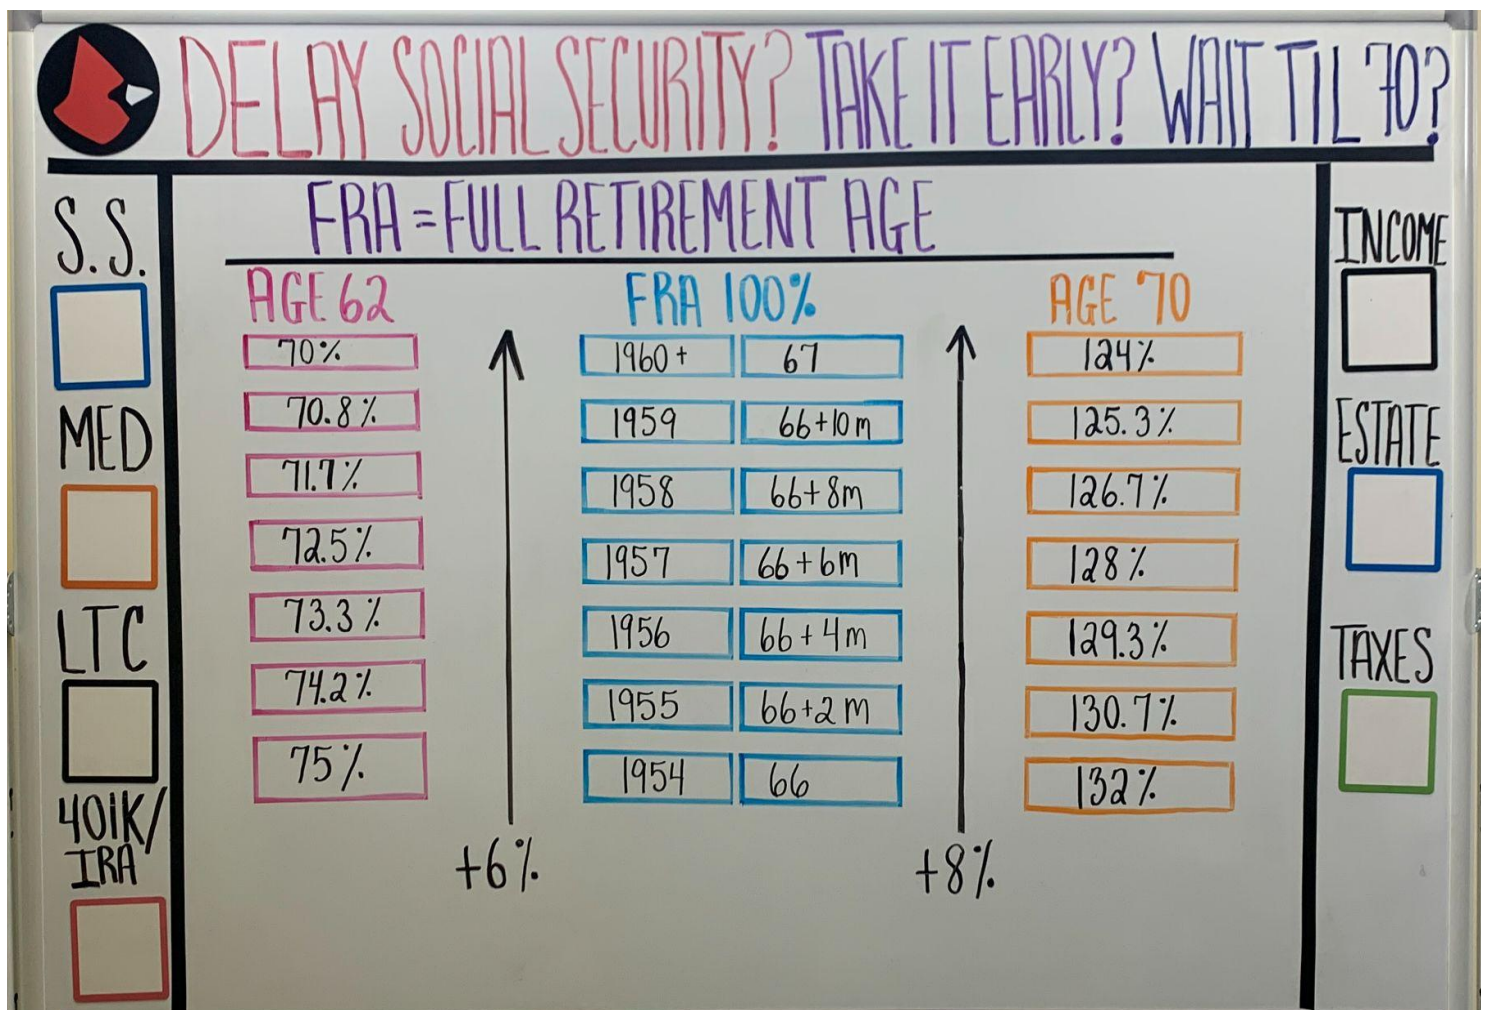 DELAY SOCIAL SECURITY? TAKE IT EARLY? WAIT TIL 70?
S.S.
MED
LTC
401K/
IRA
FRA = FULL RETIREMENT AGE
AGE 62 FRA 100% AGE 70
70% 1960+ 67 124%
70.8% 1959 66+10m 125.3%
71.7% 1958 66+8m 126.7%
72.5% 1957 66+6m 128%
73.3% 1956 66+4m 129.3%
74.2% 1955 66+2m 130.7%
75% 1954 66 132%
+6% +8%
INCOME
ESTATE
TAXES